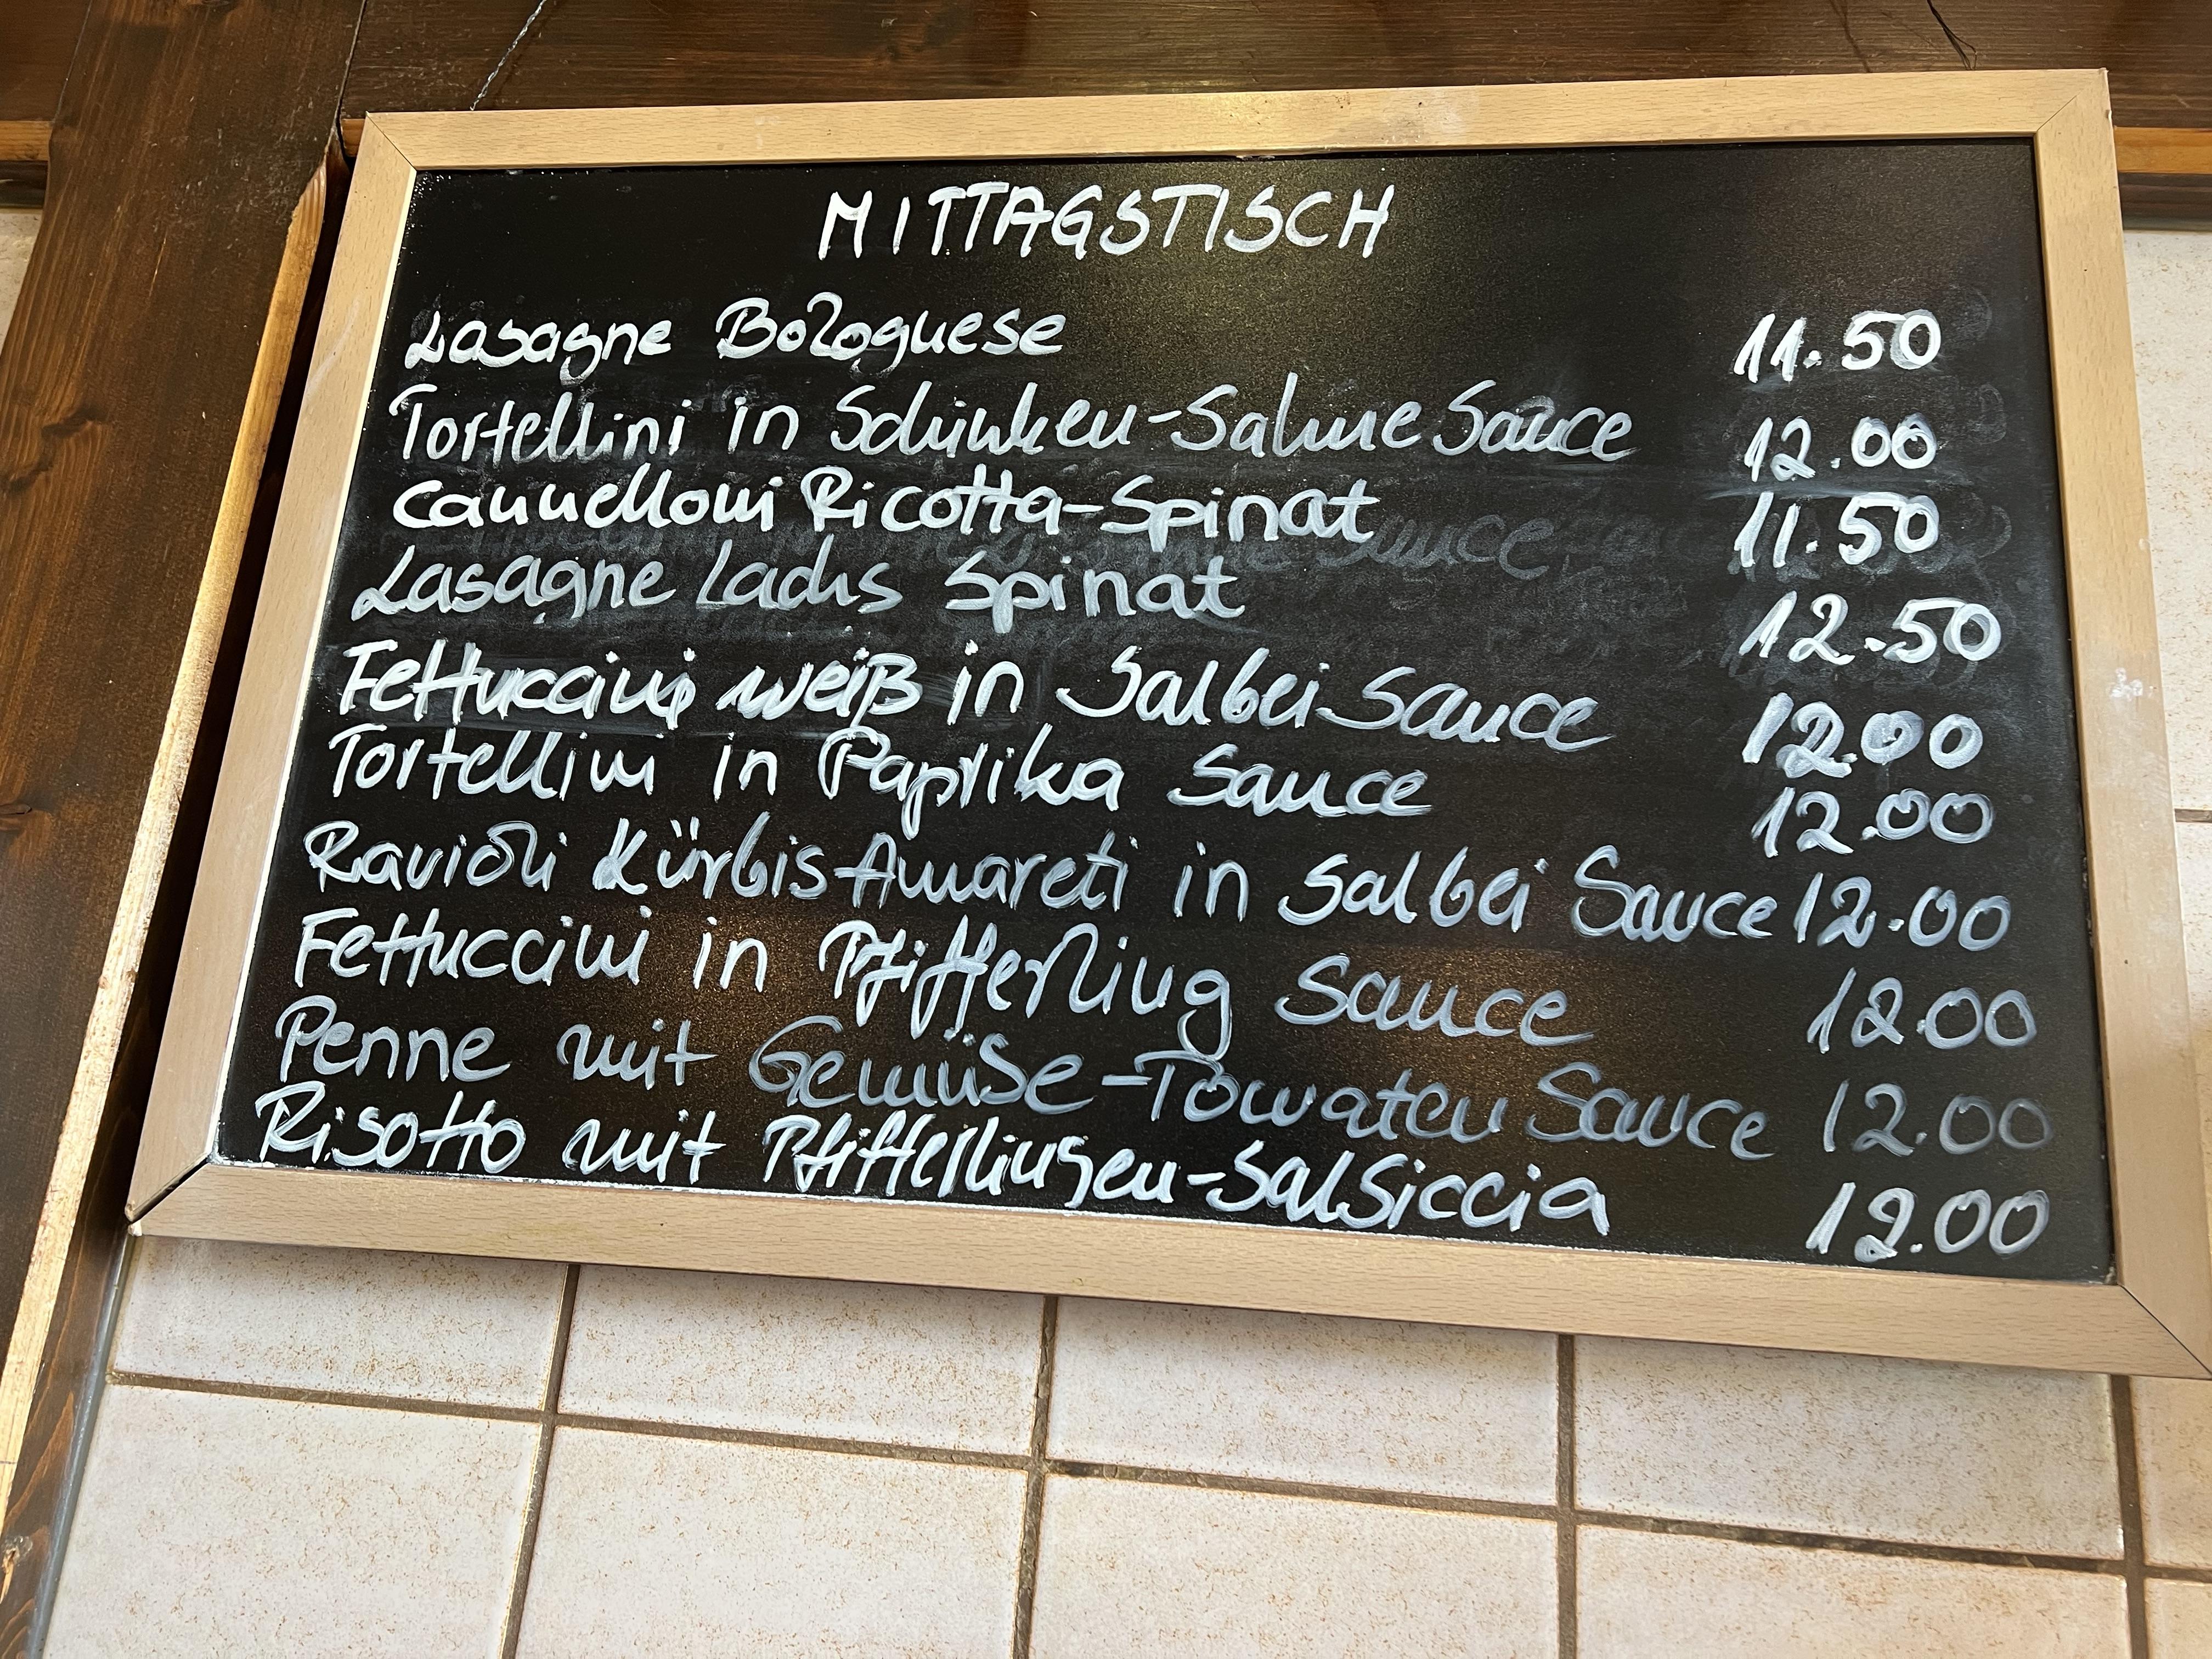 MITTAGSTISCH
Lasagne Bolognese 11.50
Tortellini in Schinken-Sahne Sauce 12.00
Cannelloni Ricotta-Spinat 11.50
Lasagne Lachs Spinat 12.50
Fettuccini weiß in Salbei Sauce 12.00
Tortellini in Paprika Sauce 12.00
Ravioli Kürbis-Amareti in Salbei Sauce 12.00
Fettuccini in Pfifferling Sauce 12.00
Penne mit Gemüse-Tomaten Sauce 12.00
Risotto mit Pfifferlingen-Salsiccia 12.00